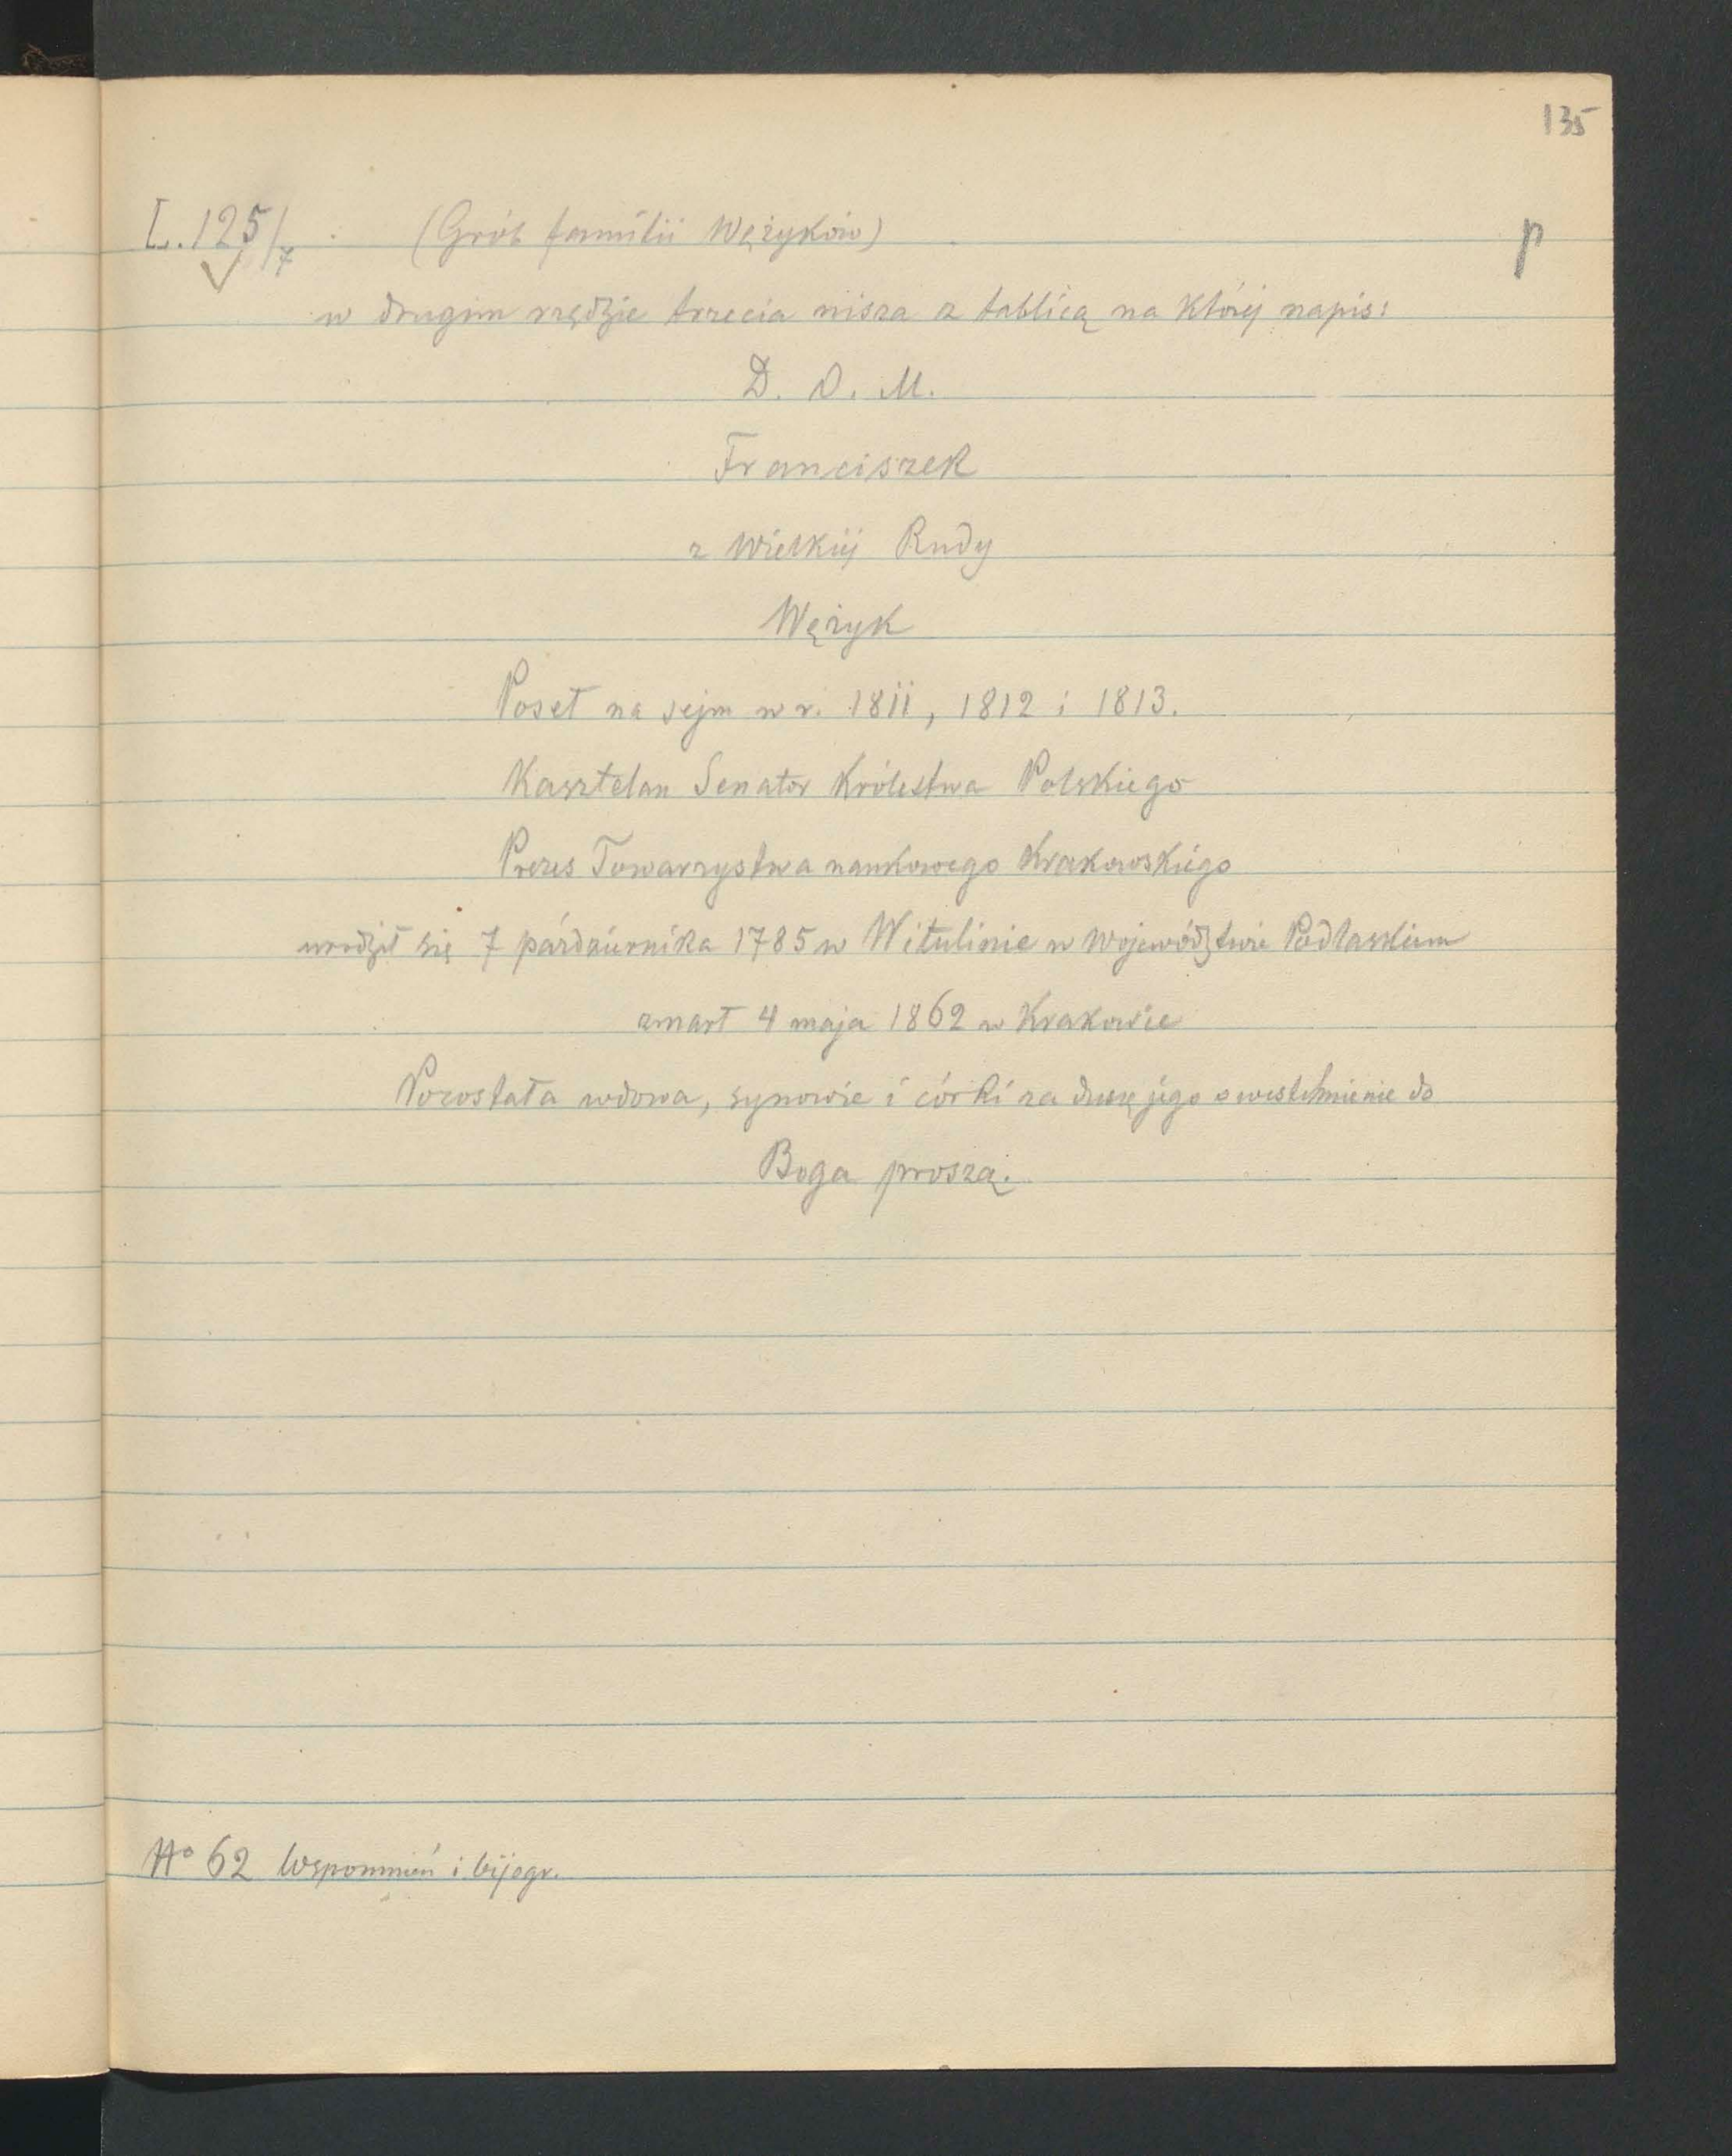 135
L. 125/7 (Grób familii Wężyków) p
w drugim rzędzie trzecia nisza z tablicą na której napis:
D. O. M.
Franciszek
z Wielkiéj Rudy
Wężyk
Poseł na sejm w r. 1811, 1812 i 1813.
Kasztelan Senator Królestwa Polskiego
Prezes Towarzystwa naukowego Krakowskiego
urodził się 7 párdziernika 1785 w Witulinie w Województwie Podlaskiem
zmarł 4 maja 1862 w Krakowie
Pozostała wdowa, synowie i córki za duszę jego o westchnienie do
Boga proszą.
No 62 Wspomnień i bijogr.